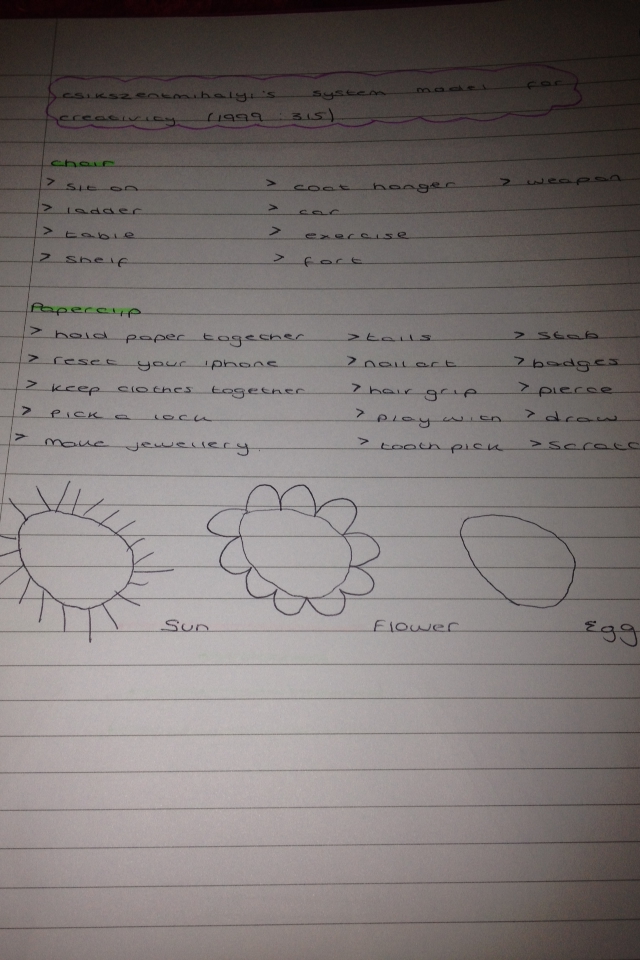 csikszentmihalyi's system model for
creativity (1999 : 315)
chair
> sit on > coat hanger > weapon
> ladder > car
> table > exercise
> shelf > fort
Paperclip
> hold paper together > tails > stab
> reset your iphone > nail art > badges
> keep clothes together > hair grip > pierce
> pick a lock > play with > draw
> make jewellery > tooth pick > scratc
Sun Flower Egg